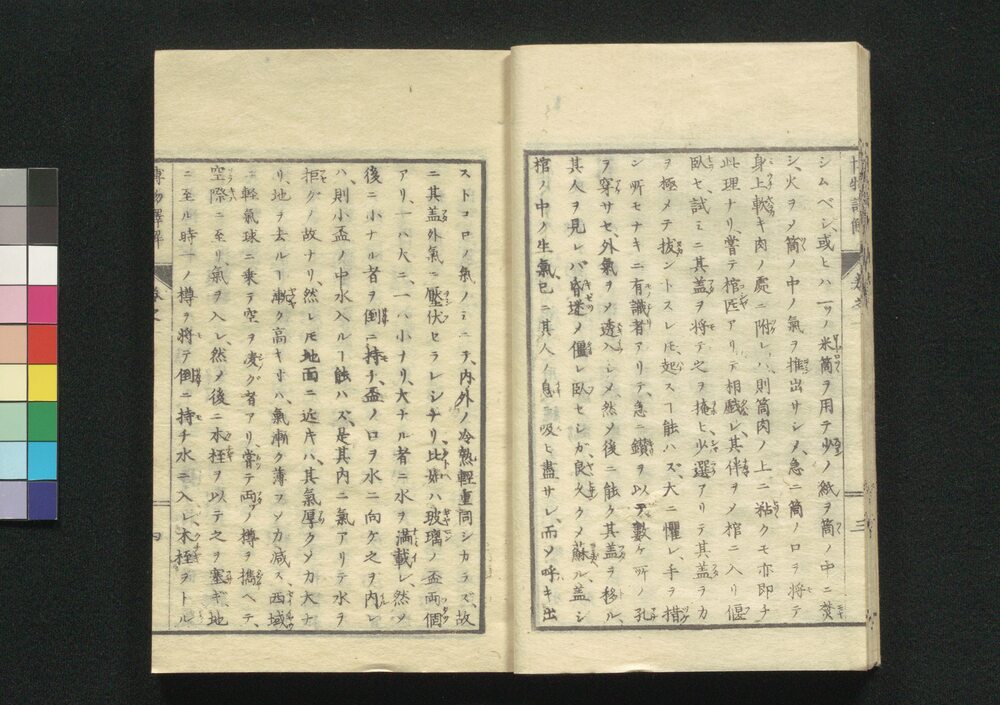 シムベシ、或ヒハ一ツノ米筒ヲ用テ少ノ紙ヲ筒ノ中ニ焚
シ、火ヲメ筒ノ中ノ氣ヲ推出サシメ、急ニ筒ノ口ヲ將テ
身上軟キ肉ノ處ニ附レハ、則筒肉ノ上ニ粘クモ亦即チ
此理ナリ、嘗テ棺匠アリテ相戯レ、其伴ヲメ棺ニ入リ偃
臥セ、試ミニ其蓋ヲ將テ之ヲ掩ヒ少選アリテ其蓋ヲカ
ヲ極メテ拔ントスレ𪜈、起スヿ能ハズ、大ニ懼レ、手ヲ措
ン所モナキニ有識者アリテ、急ニ鑚ヲ以テ數ケ所ノ孔
ヲ穿サセ、外氣ヲメ透入シメ然メ後ニ能ク其蓋ヲ移ル、
其人ヲ見レバ昏墜メ僵レ臥セシガ、良久クメ蘇ル、蓋シ
棺ノ中ノ生氣、已ニ其人ノ息吸ヒ盡サレ、而メ呼キ出
三
ストコロノ氣ノミニテ、内外ノ冷熱輕重同シカラズ、故
ニ其蓋外氣ニ壓伏セラレシナリ比婚ハ玻璃ノ盃両個
アリ、一ハ大ニ、一ハ小ナリ、大ナル者ニ水ヲ満載レ、然メ
後ニ小ナル者ヲ倒ニ持チ、盃ノ口ヲ水ニ向ケ之ヲ内レ
ハ、則小盃ノ中水入ルヿ能ハズ、是其内ニ氣アリテ水ヲ
拒グノ故ナリ、然レ𪜈地面ニ近キハ、其氣厚クメカ大ナ
リ、地ヲ去ルヿ漸ク高キ寸ハ、氣漸ク薄ヲメカ减ス、西域
ニ輕氣球ニ乗テ空ヲ凌グ者アリ、嘗テ両ノ樽ヲ携ヘテ、
空際ニ至リ、氣ヲ入レ、然メ後ニ木栓ヲ以テ之ヲ塞ギ、地
ニ至ル時一ノ樽ヲ將テ倒ニ持チ水ニ入レ、木栓ヲトル
四